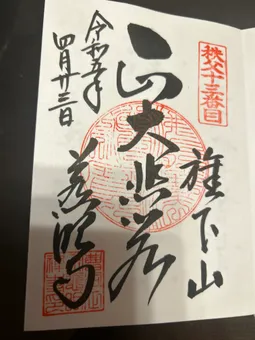 秩父十三番目
旗下山
大悲殿
慈眼寺
令和五年
四月廿三日